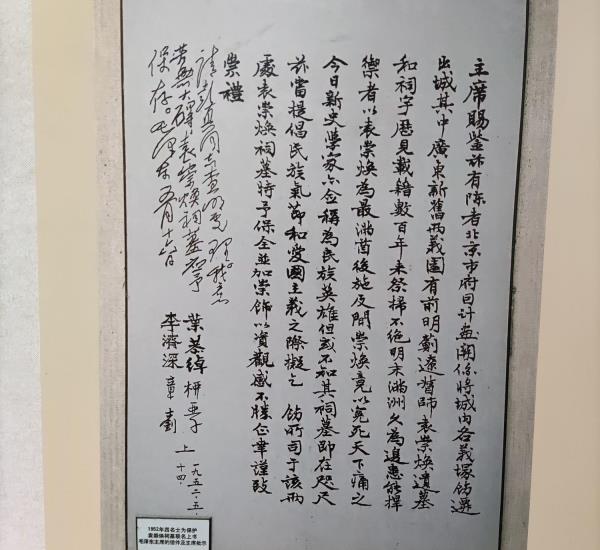 主席賜鑒有陳者北京市府因計画關係將城內各義塚飭遷
出城其中廣東新舊兩義園有前明薊遼督師袁崇煥遺墓
和祠宇歷見載籍數百年來祭掃不絕明末滿洲久為邊患能捍
禦者以袁崇煥為最滿酋後施反間崇煥竟以冤死天下痛之
今日新史學家亦僉稱為民族英雄但或不知其祠墓即在咫尺
茲當提倡民族氣節和愛國主義之際擬乞 飭所司于該兩
處袁崇煥祠墓特予保全並加崇飾以資觀感不勝企幸謹致
崇禮
葉恭綽 柳亞子
李濟深 章士釗 上
一九五二·五·
十四·
請彭真同志查明處理。我意
若無大碍,袁崇煥祠墓應予
保存。毛澤東 五月十六日
1952年四名士为保护
袁崇焕祠墓联名上书
毛泽东主席的信件及主席批示